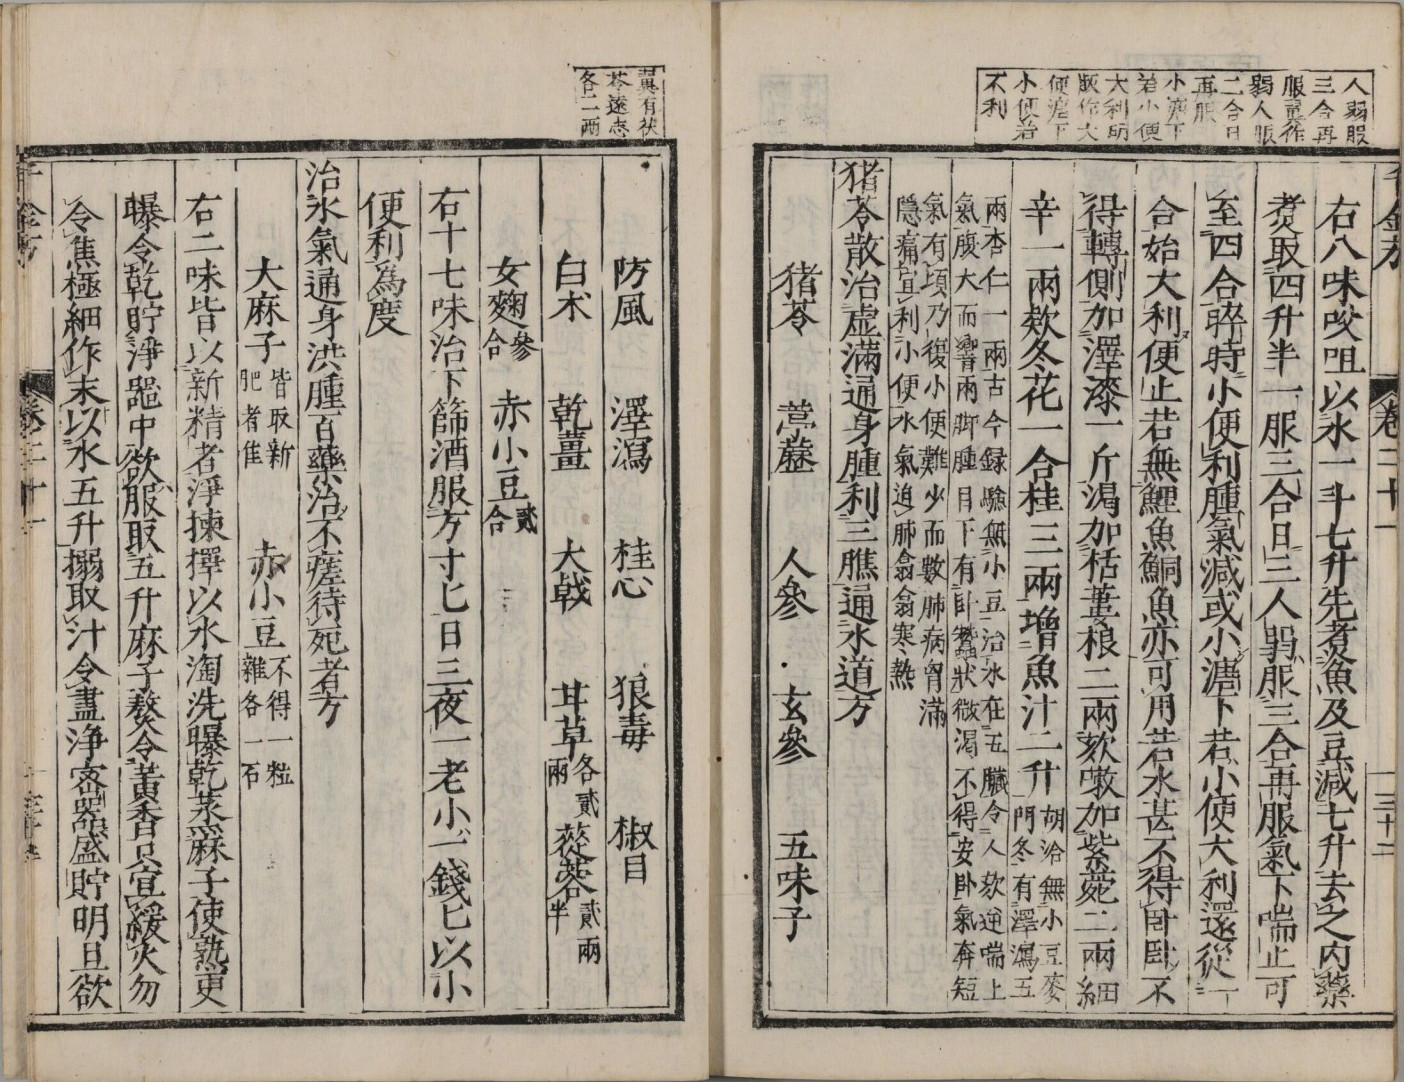 人弱服
三合再
服真作
弱人服
二合日
再服
小溏下
若小便
大利明
版作大
便溏下
小便若
不利
千金方
卷二十一
三十二
右八味㕮咀以水一斗七升先煮魚及豆減七升去之内藥
煮取四升半一服三合日三人弱服二合再服氣下喘止可
至四合晬時小便利腫氣減或小溏下若小便大利還從一
合始大利便止若無鯉魚鮦魚亦可用若水甚不得卧卧不
得轉側加澤漆一斤渴加栝蔞根二兩欬嗽加紫菀二兩細
辛一兩欬冬花一合桂三兩增魚汁二升胡洽無小豆麥
門冬有澤瀉五
兩杏仁一兩古今録驗無小豆治水在五臓令人欬逆喘上
氣腹大而響兩脚腫目下有卧蠶狀微渴不得安卧氣奔短
氣有頃乃復小便難少而數肺病胷滿
隱痛宜利小便水氣迫肺翕翕寒熱
猪苓散治虚滿通身腫利三膲通水道方
猪苓 葶藶 人參 玄參 五味子
冀有茯
苓遠志
各二兩
防風 澤瀉 桂心 狼毒 椒目
白术 乾薑 大戟 甘草各貳兩 蓯蓉貳兩半
女麴參合 赤小豆貳合
右十七味治下篩酒服方寸匕日三夜一老小一錢匕以小
便利為度
治水氣通身洪腫百藥治不瘥待死者方
大麻子皆取新肥者佳 赤小豆不得一粒雜各一石
右二味皆以新精者淨揀擇以水淘洗曝乾蒸麻子使熟更
曝令乾貯淨器中欲服取五升麻子熬令黃香只宜緩火勿
令焦極細作末以水五升搦取汁令盡淨密器盛貯明旦欲
千金方
卷二十一